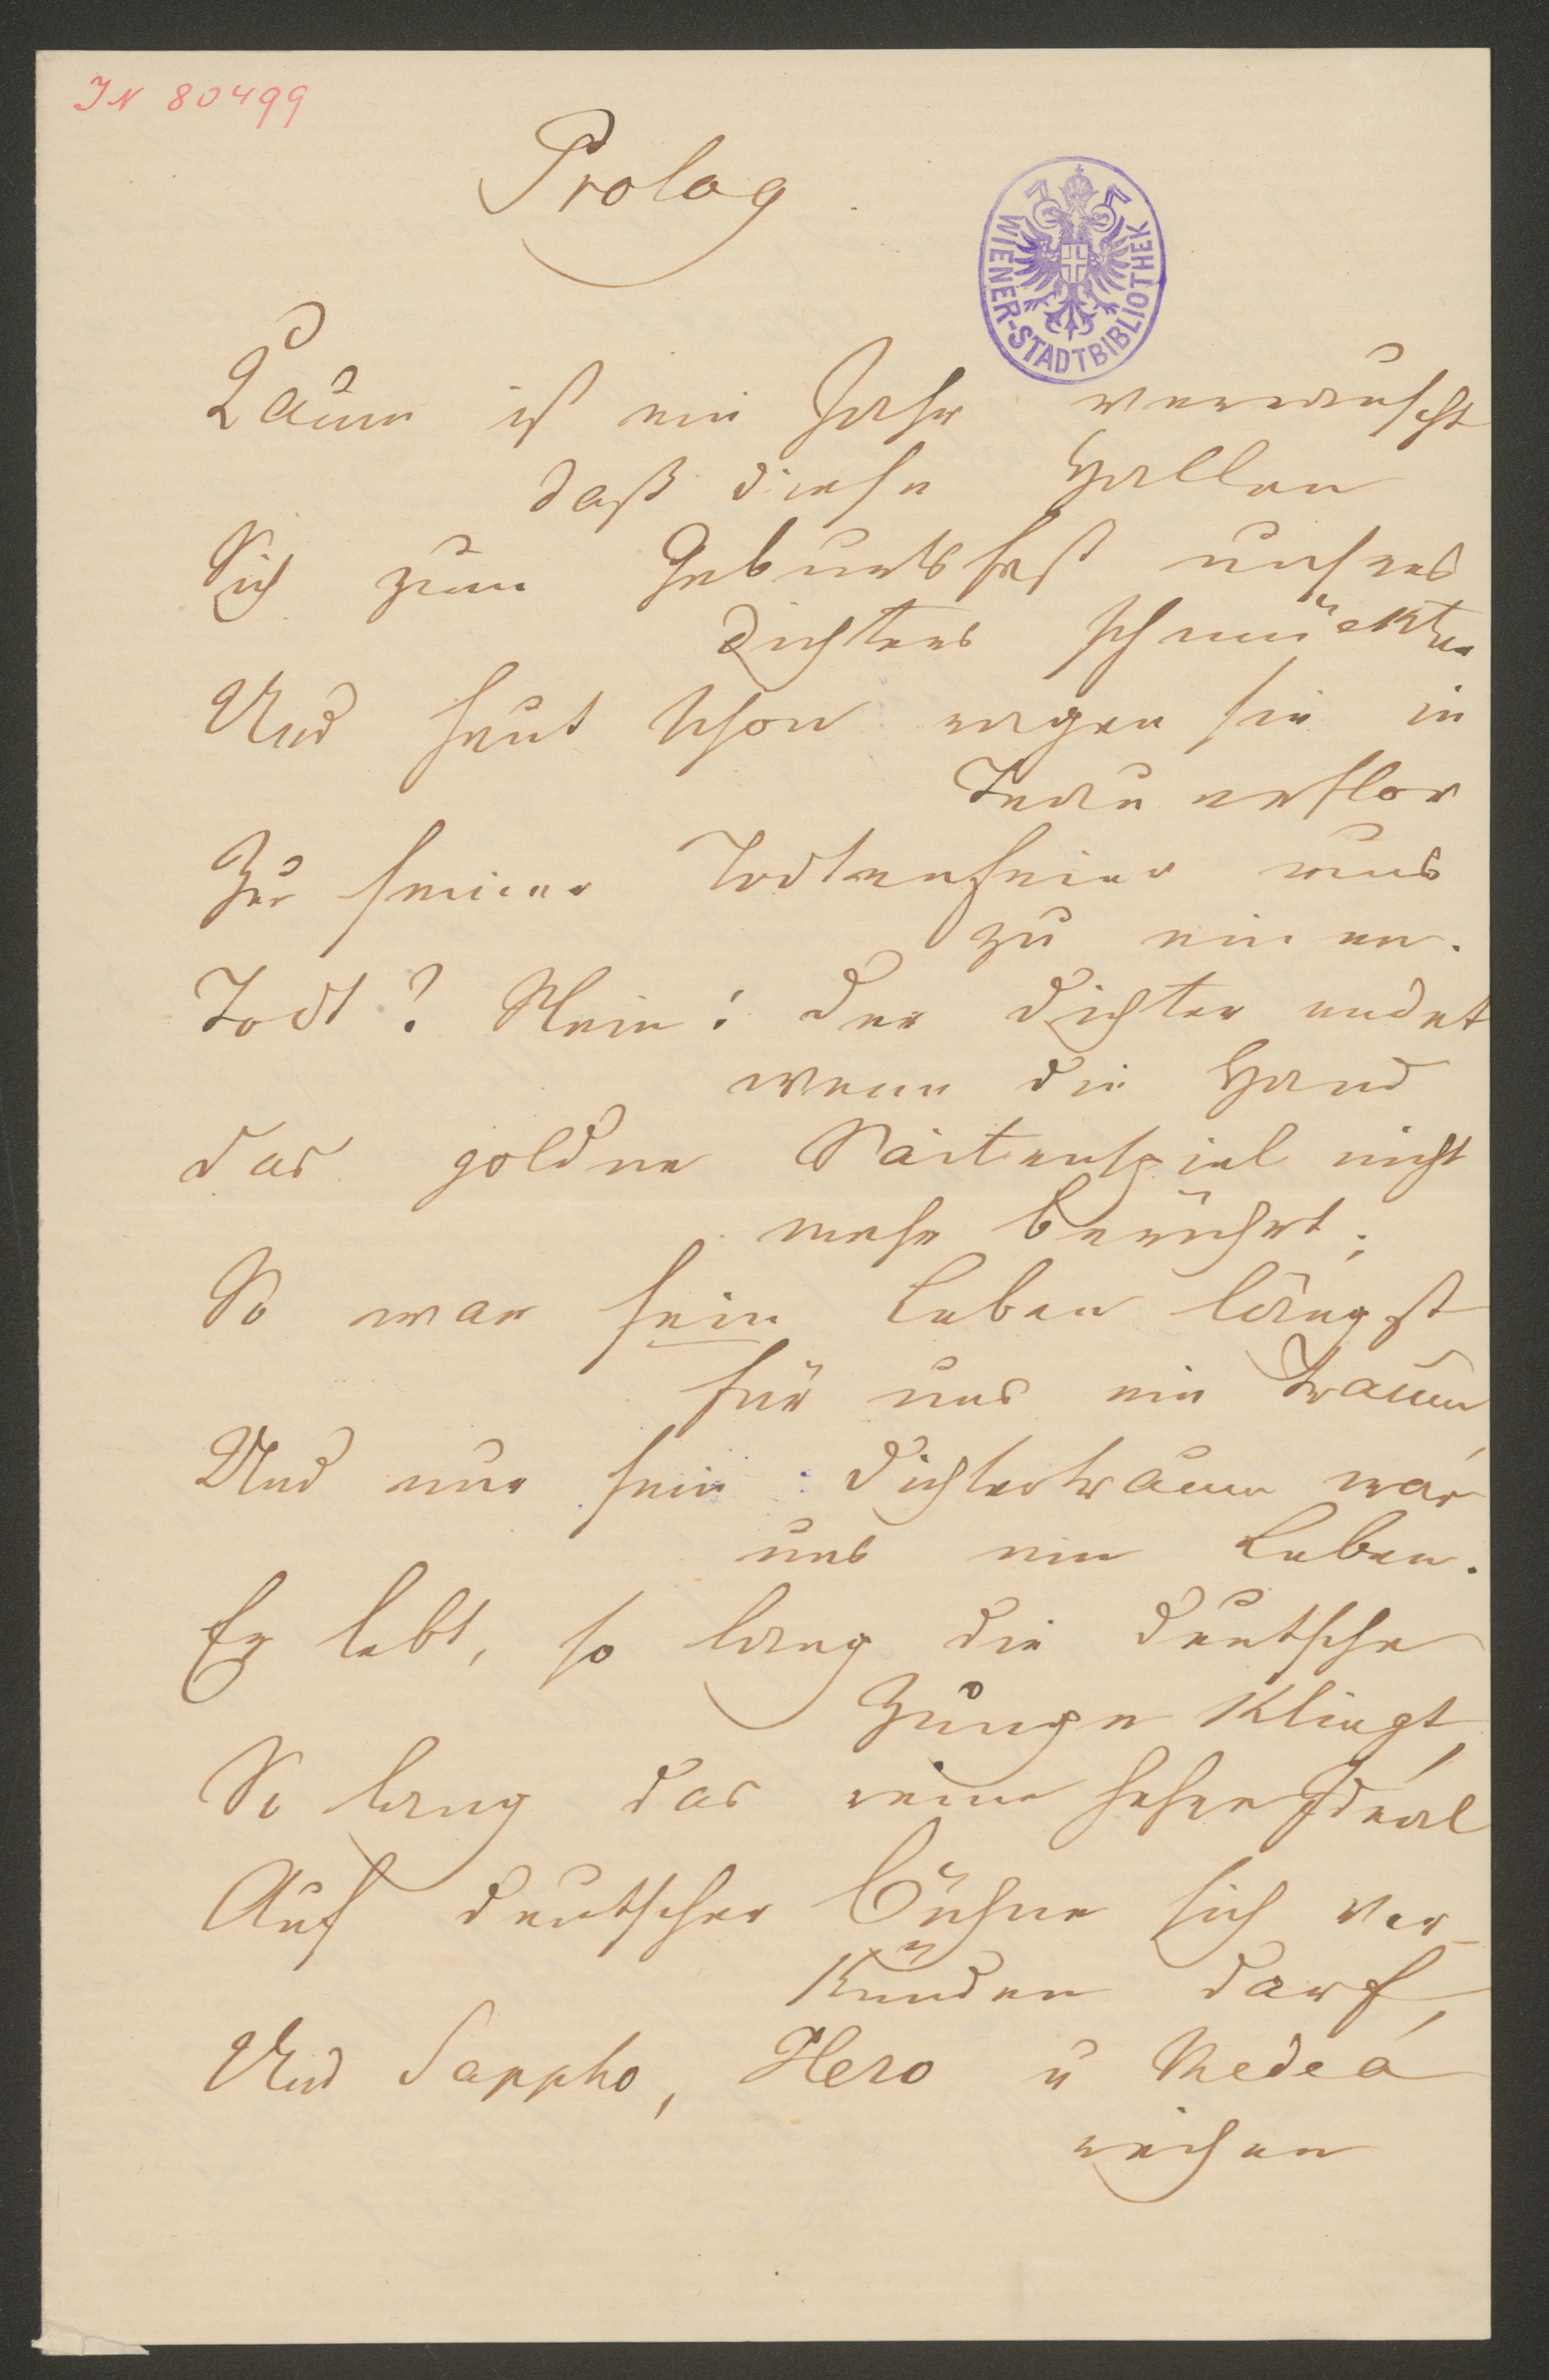 IN 80499
Prolog.
WIENER-STADTBIBLIOTHEK
Kaum ist ein Jahr verrauscht
daß diese Hallen
Sich zum Geburtsfest unsres
Dichters schmückten
Und heut schon ragen sie in
Trauerflor
Zur seiner Todtenfeier uns
zu einen.
Todt? Nein! der Dichter endet
wenn die Hand
das goldne Saitenspiel nicht
mehr berührt;
So war sein Leben längst
für uns ein Traum,
Und nur sein Dichtertraum war
uns ein Leben.
Er lebt, so lang die deutsche
Zunge klingt,
So lang das reine hehre Ideal
Auf deutscher Bühne sich ver-
künden darf,
Und Sappho, Hero u Medea
reichen